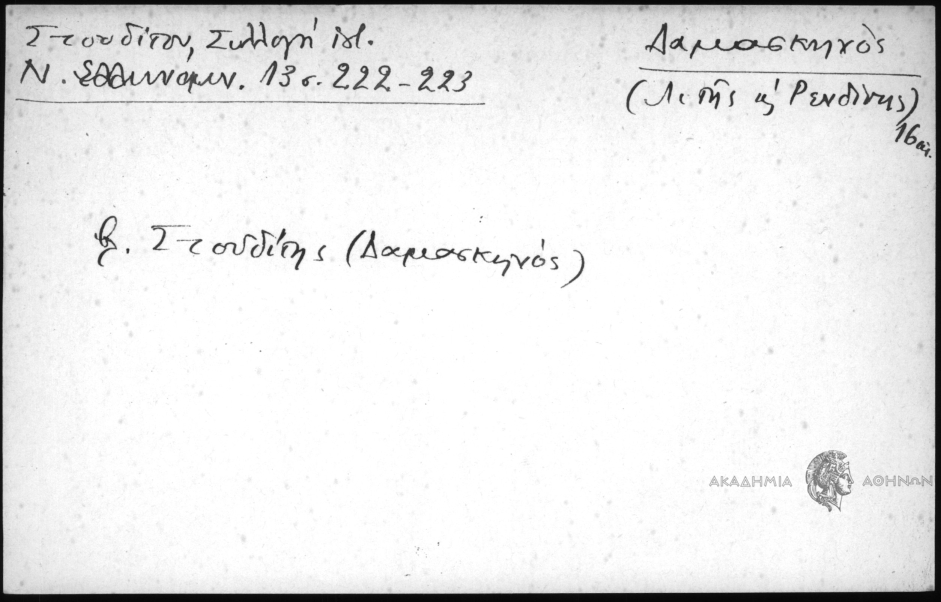 Στουδίτου, Συλλογή
Ν. Ἑλληνομν. 13 σ. 222-223
Δαμασκηνὸς
(Λιτῆς κ Ρενδίνης)
16 αἰ.
β. Στουδίτης (Δαμασκηνὸς)
ΑΚΑΔΗΜΙΑ ΑΘΗΝΩΝ